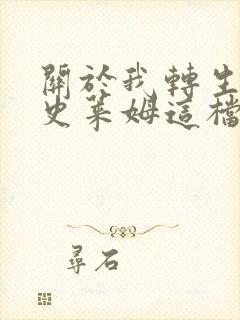 關於我轉生
史萊姆這檔
尋石